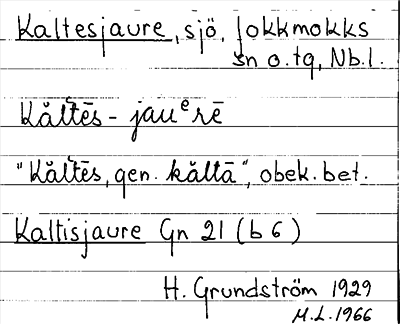 Kaltesjaure, sjö, Jokkmokks
sn o. tg, Nb.l.
Kăl̆tēs - jauᵉrē
"Kăl̆tēs, gen. kăl̆tā", obek. bet.
Kaltisjaure Gn 21 (b 6)
H. Grundström 1929
M.L. 1966